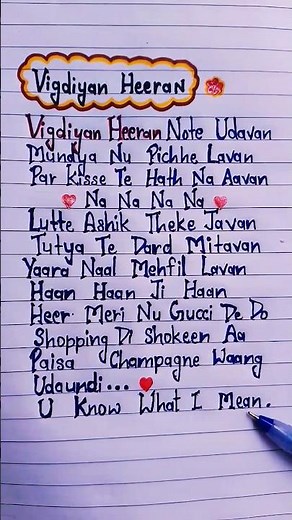 Vigdiyan Heeran
Vigdiyan Heeran Note Udavan
Mundya Nu Pichhe Lavan
Par Kisse Te Hath Na Aavan
Na Na Na Na
Lutte Ashik Theke Javan
Tutya Te Dard Mitavan
Yaara Naal Mehfil Lavan
Haan Haan Ji Haan
Heer Meri Nu Gucci De Do
Shopping Di Shokeen Aa
Paisa Champagne Waang
Udaundi...
U Know What I Mean.